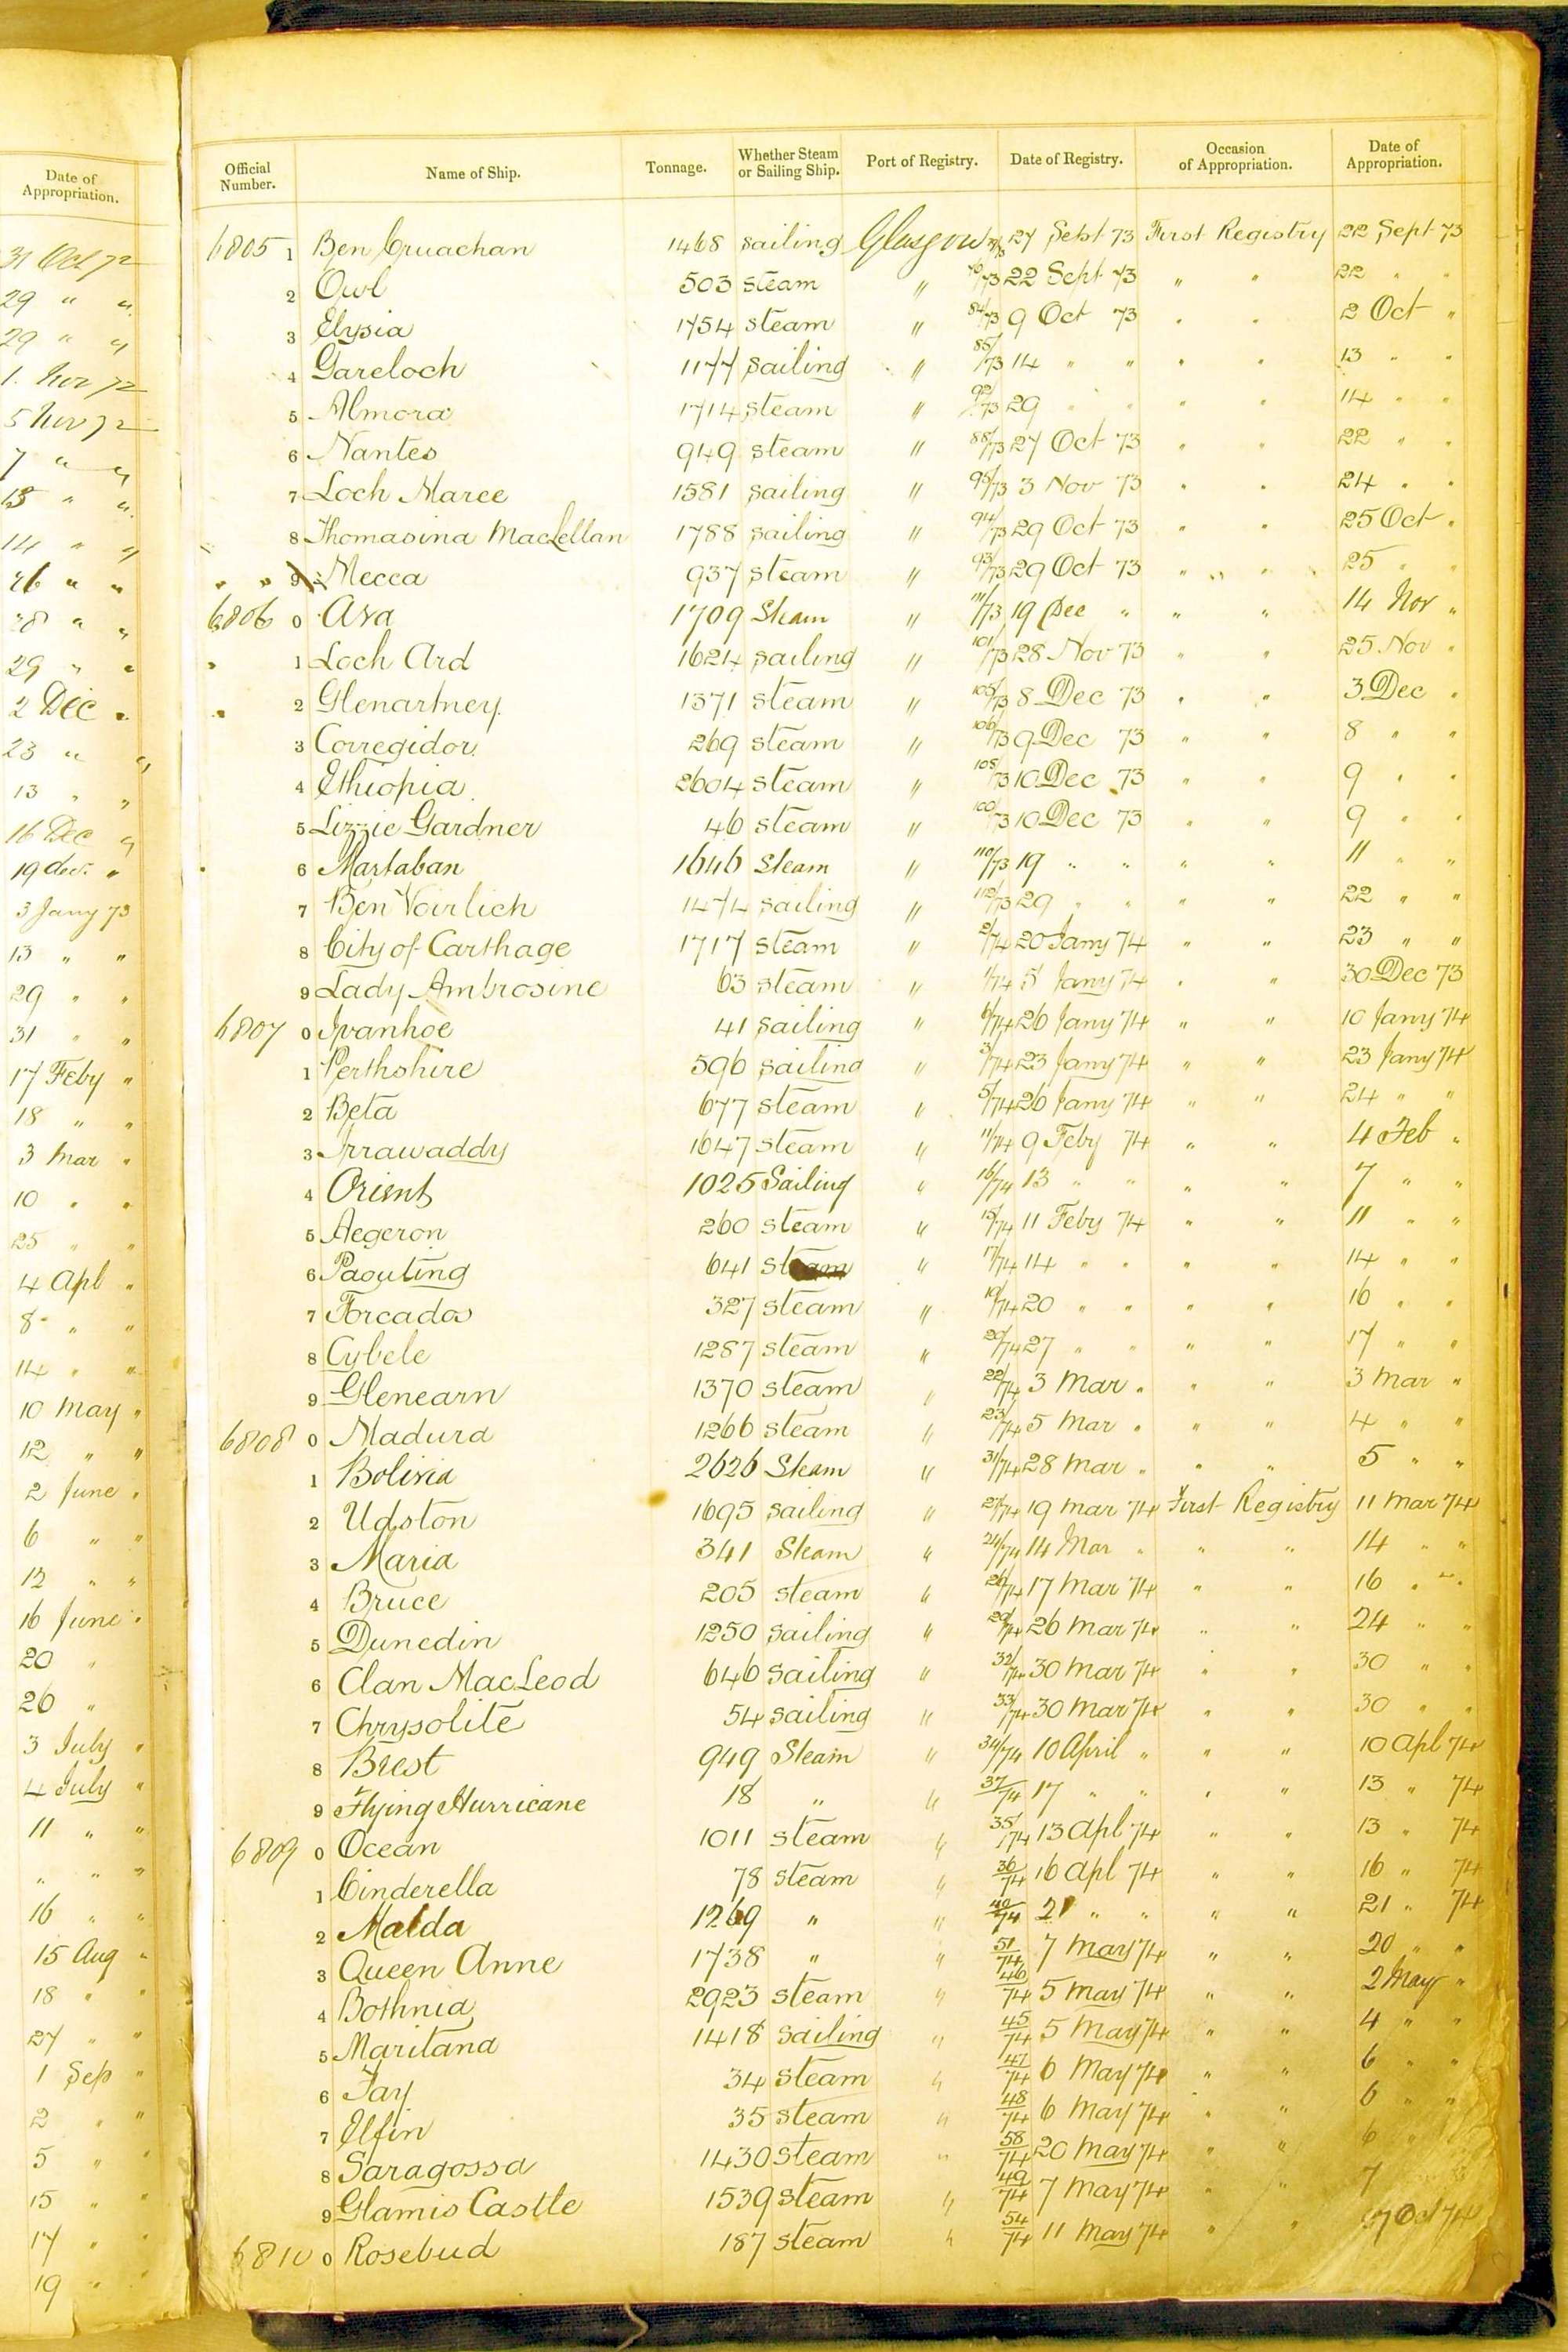 Date of Appropriation.
31 Oct 72
29 " "
29 " "
1. Nov 72
5 Nov 72
7 " "
13 " "
14 " "
26 " "
28 " "
29 " "
2 Dec "
23 " "
13 " "
16 Dec "
19 dec. "
3 Jany 73
13 " "
29 " "
31 " "
17 Feby "
18 " "
3 Mar "
10 " "
25 " "
4 Apl "
8 " "
14 " "
10 May "
12 " "
2 June "
6 " "
12 " "
16 June "
20 "
26 "
3 July "
4 July "
11 " "
" " "
16 " "
15 Aug "
18 " "
27 " "
1 Sep "
2 " "
5 " "
15 " "
17 "
19 " "
Official Number. Name of Ship. Tonnage. Whether Steam or Sailing Ship. Port of Registry. Date of Registry. Occasion of Appropriation. Date of Appropriation.
6805 1 Ben Cruachan 1468 sailing Glasgow 27 Sept 73 First Registry 22 Sept 73
2 Owl 503 steam " 22 Sept 73 " " 22 " "
3 Elysia 1754 steam " 84/73 9 Oct 73 " " 2 Oct "
4 Gareloch 1177 sailing " 85/73 14 " " " " 13 " "
5 Almora 1714 steam " 92/73 29 " " " " 14 " "
6 Nantes 949 steam " 88/73 27 Oct 73 " " 22 " "
7 Loch Maree 1581 sailing " 95/73 3 Nov 73 " " 24 " "
8 Thomasina MacLellan 1788 sailing " 94/73 29 Oct 73 " " 25 Oct "
9 Mecca 937 steam " 93/73 29 Oct 73 " " 25 " "
6806 0 Ava 1709 Steam " 111/73 19 Dec " " " 14 Nov "
1 Loch Ard 1624 sailing " 101/73 28 Nov 73 " " 25 Nov "
2 Glenartney 1371 steam " 105/73 8 Dec 73 " " 3 Dec "
3 Corregidor 269 steam " 106/73 9 Dec 73 " " 8 " "
4 Ethiopia 2604 steam " 108/73 10 Dec 73 " " 9 " "
5 Lizzie Gardner 46 steam " 100/73 10 Dec 73 " " 9 " "
6 Martaban 1646 Steam " 110/73 19 " " " " 11 " "
7 Ben Voirlich 1474 sailing " 112/73 29 " " " " 22 " "
8 City of Carthage 1717 steam " 2/74 20 Jany 74 " " 23 " "
9 Lady Ambrosine 63 steam " 1/74 5 Jany 74 " " 30 Dec 73
6807 0 Ivanhoe 41 sailing " 6/74 26 Jany 74 " " 10 Jany 74
1 Perthshire 596 sailing " 3/74 23 Jany 74 " " 23 Jany 74
2 Beta 677 steam " 5/74 26 Jany 74 " " 24 " "
3 Irrawaddy 1647 steam " 11/74 9 Feby 74 " " 4 Feb "
4 Orient 1025 Sailing " 16/74 13 " " " " 7 " "
5 Aegeron 260 steam " 15/74 11 Feby 74 " " 11 " "
6 Paouting 641 steam " 17/74 14 " " " " 14 " "
7 Forcados 327 steam " 19/74 20 " " " " 16 " "
8 Cybele 1287 steam " 20/74 27 " " " " 17 " "
9 Glenearn 1370 steam " 22/74 3 Mar " " " 3 Mar "
6808 0 Madura 1266 steam " 23/74 5 Mar " " " 4 " "
1 Bolivia 2626 Steam " 31/74 28 Mar " " " 5 " "
2 Udston 1695 sailing " 27/74 19 Mar 74 First Registry 11 Mar 74
3 Maria 341 Steam " 24/74 14 Mar " " " 14 " "
4 Bruce 205 steam " 26/74 17 Mar 74 " " 16 " "
5 Dunedin 1250 sailing " 29/74 26 Mar 74 " " 24 " "
6 Clan MacLeod 646 sailing " 32/74 30 Mar 74 " " 30 " "
7 Chrysolite 54 sailing " 33/74 30 Mar 74 " " 30 " "
8 Brest 949 Steam " 34/74 10 April " " " 10 Apl 74
9 Flying Hurricane 18 " " 37/74 17 " " " " 13 " 74
6809 0 Ocean 1011 steam " 35/74 13 Apl 74 " " 13 " 74
1 Cinderella 78 steam " 36/74 16 Apl 74 " " 16 " 74
2 Malda 1269 " " 40/74 21 " " " " 21 " 74
3 Queen Anne 1738 " " 51/74 7 May 74 " " 20 " "
4 Bothnia 2923 steam " 46/74 5 May 74 " " 2 May "
5 Maritana 1418 sailing " 45/74 5 May 74 " " 4 " "
6 Jay 34 steam " 47/74 6 May 74 " " 6 " "
7 Elfin 35 steam " 48/74 6 May 74 " " 6 " "
8 Saragossa 1430 steam " 58/74 20 May 74 " " 6
9 Glamis Castle 1539 steam " 49/74 7 May 74 " " 7
6810 0 Rosebud 187 steam " 54/74 11 May 74 " " 7 Oct 74